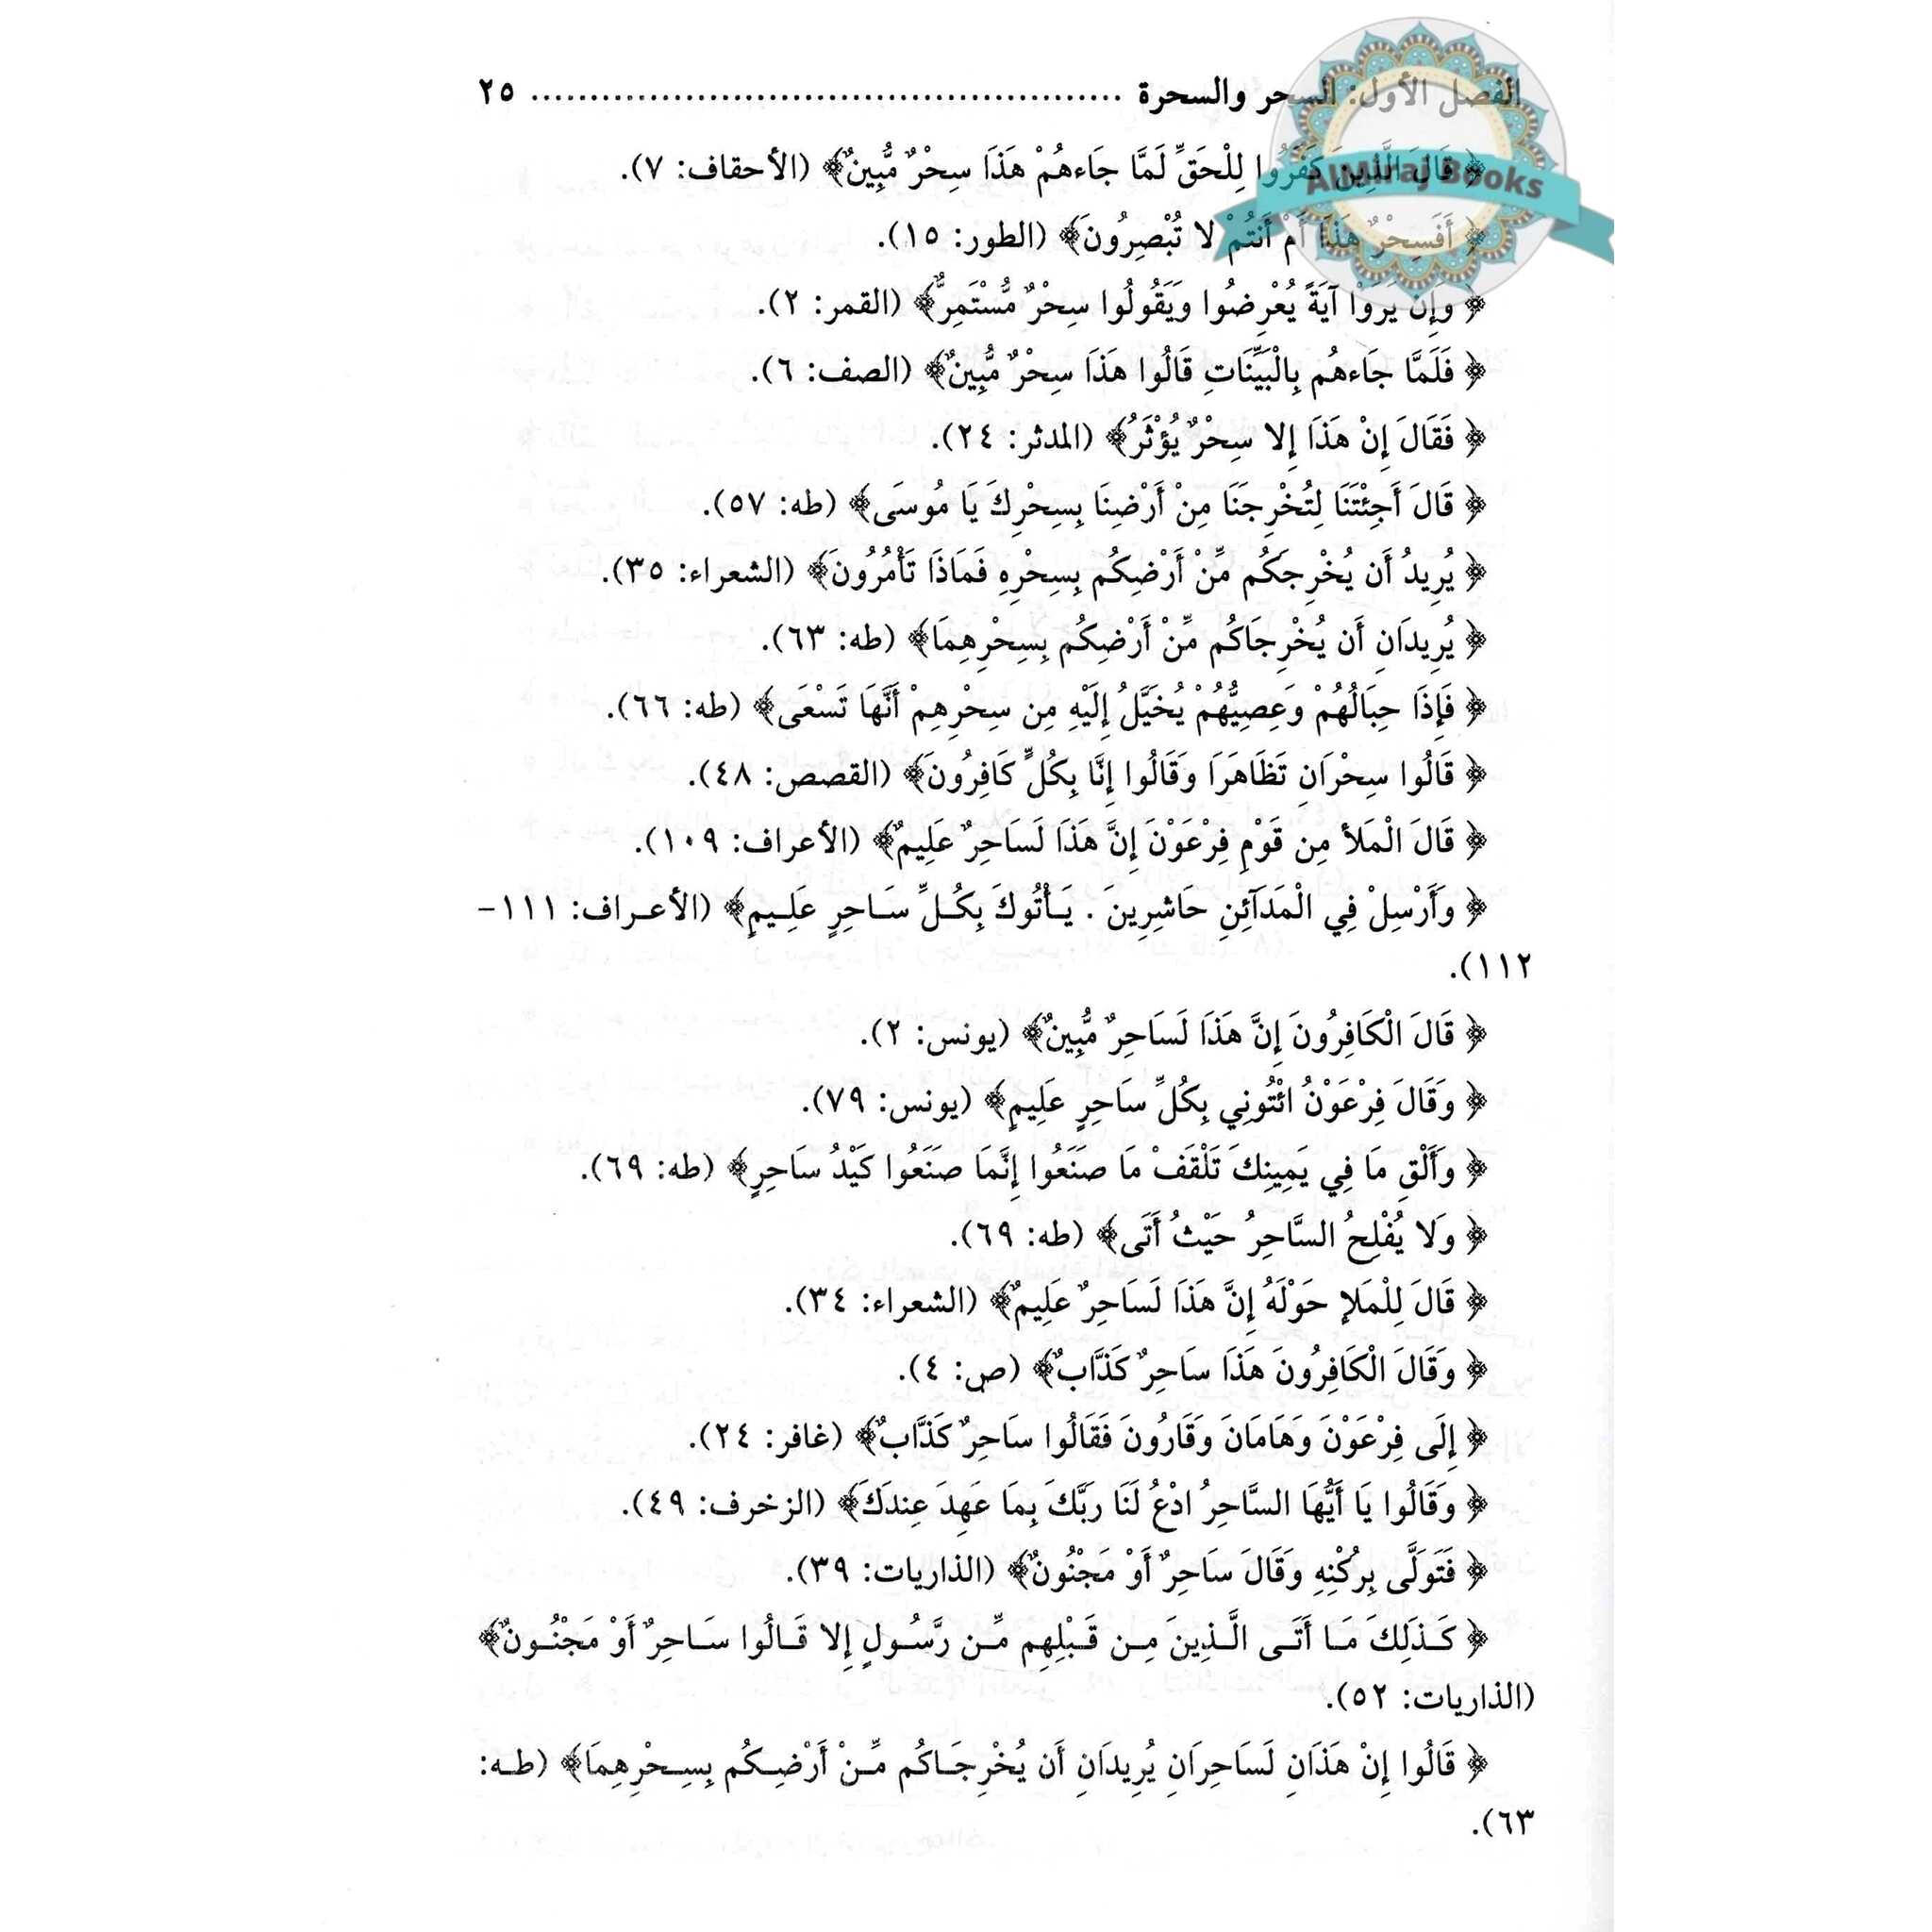 الفصل الأول: السحر والسحرة ........................................................ ٢٥
AlMiraj Books
﴿قَالَ الَّذِينَ كَفَرُوا لِلْحَقِّ لَمَّا جَاءهُمْ هَذَا سِحْرٌ مُّبِينٌ﴾ (الأحقاف: ٧).
﴿أَفَسِحْرٌ هَذَا أَمْ أَنتُمْ لا تُبْصِرُونَ﴾ (الطور: ١٥).
﴿وَإِن يَرَوْا آيَةً يُعْرِضُوا وَيَقُولُوا سِحْرٌ مُّسْتَمِرٌّ﴾ (القمر: ٢).
﴿فَلَمَّا جَاءهُم بِالْبَيِّنَاتِ قَالُوا هَذَا سِحْرٌ مُّبِينٌ﴾ (الصف: ٦).
﴿فَقَالَ إِنْ هَذَا إِلا سِحْرٌ يُؤْثَرُ﴾ (المدثر: ٢٤).
﴿قَالَ أَجِئْتَنَا لِتُخْرِجَنَا مِنْ أَرْضِنَا بِسِحْرِكَ يَا مُوسَى﴾ (طه: ٥٧).
﴿يُرِيدُ أَن يُخْرِجَكُم مِّنْ أَرْضِكُم بِسِحْرِهِ فَمَاذَا تَأْمُرُونَ﴾ (الشعراء: ٣٥).
﴿يُرِيدَانِ أَن يُخْرِجَاكُم مِّنْ أَرْضِكُم بِسِحْرِهِمَا﴾ (طه: ٦٣).
﴿فَإِذَا حِبَالُهُمْ وَعِصِيُّهُمْ يُخَيَّلُ إِلَيْهِ مِن سِحْرِهِمْ أَنَّهَا تَسْعَى﴾ (طه: ٦٦).
﴿قَالُوا سِحْرَانِ تَظَاهَرَا وَقَالُوا إِنَّا بِكُلٍّ كَافِرُونَ﴾ (القصص: ٤٨).
﴿قَالَ الْمَلأ مِن قَوْمِ فِرْعَوْنَ إِنَّ هَذَا لَسَاحِرٌ عَلِيمٌ﴾ (الأعراف: ١٠٩).
﴿وَأَرْسِلْ فِي الْمَدَآئِنِ حَاشِرِينَ . يَـأْتُوكَ بِكُـلِّ سَـاحِرٍ عَلِـيمٍ﴾ (الأعـراف: ١١١-
١١٢).
﴿قَالَ الْكَافِرُونَ إِنَّ هَذَا لَسَاحِرٌ مُّبِينٌ﴾ (يونس: ٢).
﴿وَقَالَ فِرْعَوْنُ ائْتُونِي بِكُلِّ سَاحِرٍ عَلِيمٍ﴾ (يونس: ٧٩).
﴿وَأَلْقِ مَا فِي يَمِينِكَ تَلْقَفْ مَا صَنَعُوا إِنَّمَا صَنَعُوا كَيْدُ سَاحِرٍ﴾ (طه: ٦٩).
﴿وَلا يُفْلِحُ السَّاحِرُ حَيْثُ أَتَى﴾ (طه: ٦٩).
﴿قَالَ لِلْمَلإ حَوْلَهُ إِنَّ هَذَا لَسَاحِرٌ عَلِيمٌ﴾ (الشعراء: ٣٤).
﴿وَقَالَ الْكَافِرُونَ هَذَا سَاحِرٌ كَذَّابٌ﴾ (ص: ٤).
﴿إِلَى فِرْعَوْنَ وَهَامَانَ وَقَارُونَ فَقَالُوا سَاحِرٌ كَذَّابٌ﴾ (غافر: ٢٤).
﴿وَقَالُوا يَا أَيُّهَا السَّاحِرُ ادْعُ لَنَا رَبَّكَ بِمَا عَهِدَ عِندَكَ﴾ (الزخرف: ٤٩).
﴿فَتَوَلَّى بِرُكْنِهِ وَقَالَ سَاحِرٌ أَوْ مَجْنُونٌ﴾ (الذاريات: ٣٩).
﴿كَـذَلِكَ مَـا أَتَـى الَّـذِينَ مِـن قَـبْلِهِم مِّـن رَّسُـولٍ إِلا قَـالُوا سَـاحِرٌ أَوْ مَجْنُـونٌ﴾
(الذاريات: ٥٢).
﴿قَالُوا إِنْ هَذَانِ لَسَاحِرَانِ يُرِيدَانِ أَن يُخْرِجَـاكُم مِّـنْ أَرْضِـكُم بِسِـحْرِهِمَا﴾ (طـه:
٦٣).